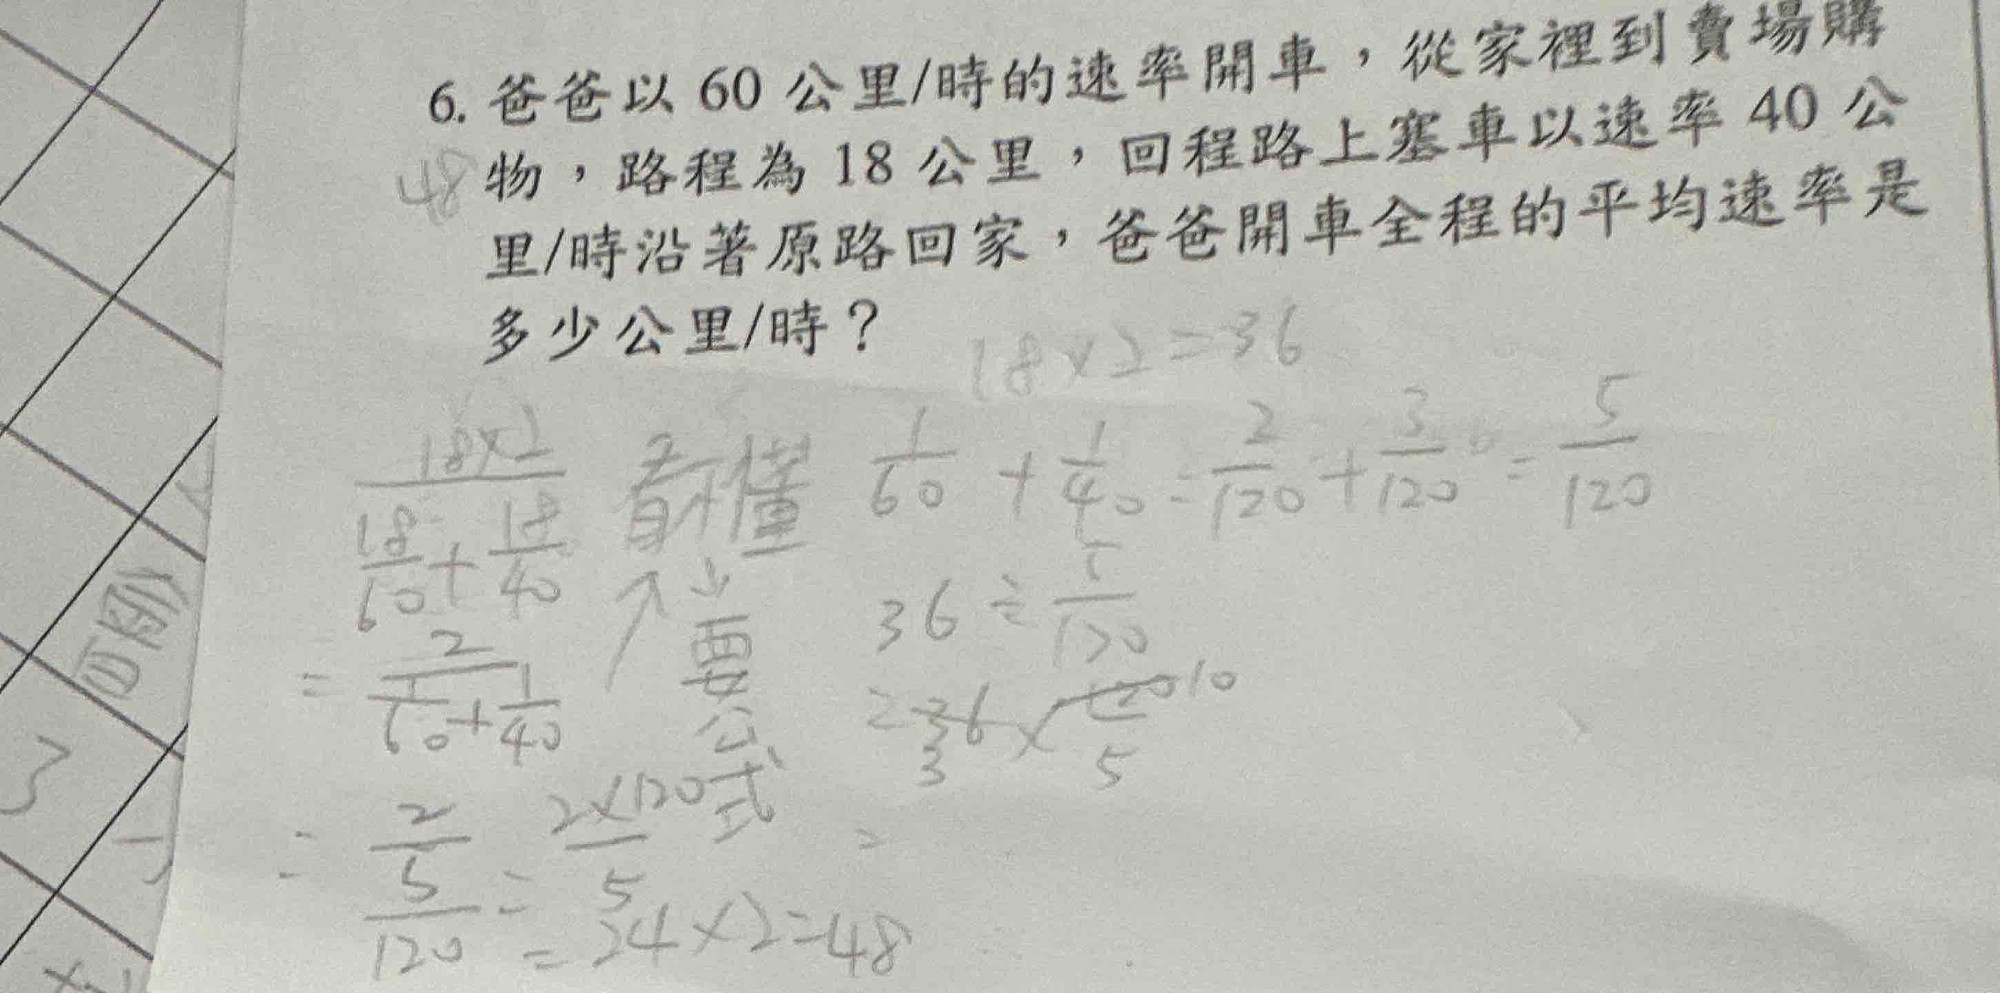 6. 爸爸以 60 公里/時的速率開車，從家裡到賣場購
物，路程為 18 公里，回程路上塞車以速率 40 公
里/時沿著原路回家，爸爸開車全程的平均速率是
多少公里/時？
48
18×2=36
18×2
18/60+18/40
看不懂
1/60+1/40=2/120+3/120=5/120
=2/(1/60+1/40)
要公式
36÷5/120
=36×120/5
3
10
=2/(5/120)=2×120/5
=24×2=48
=
3